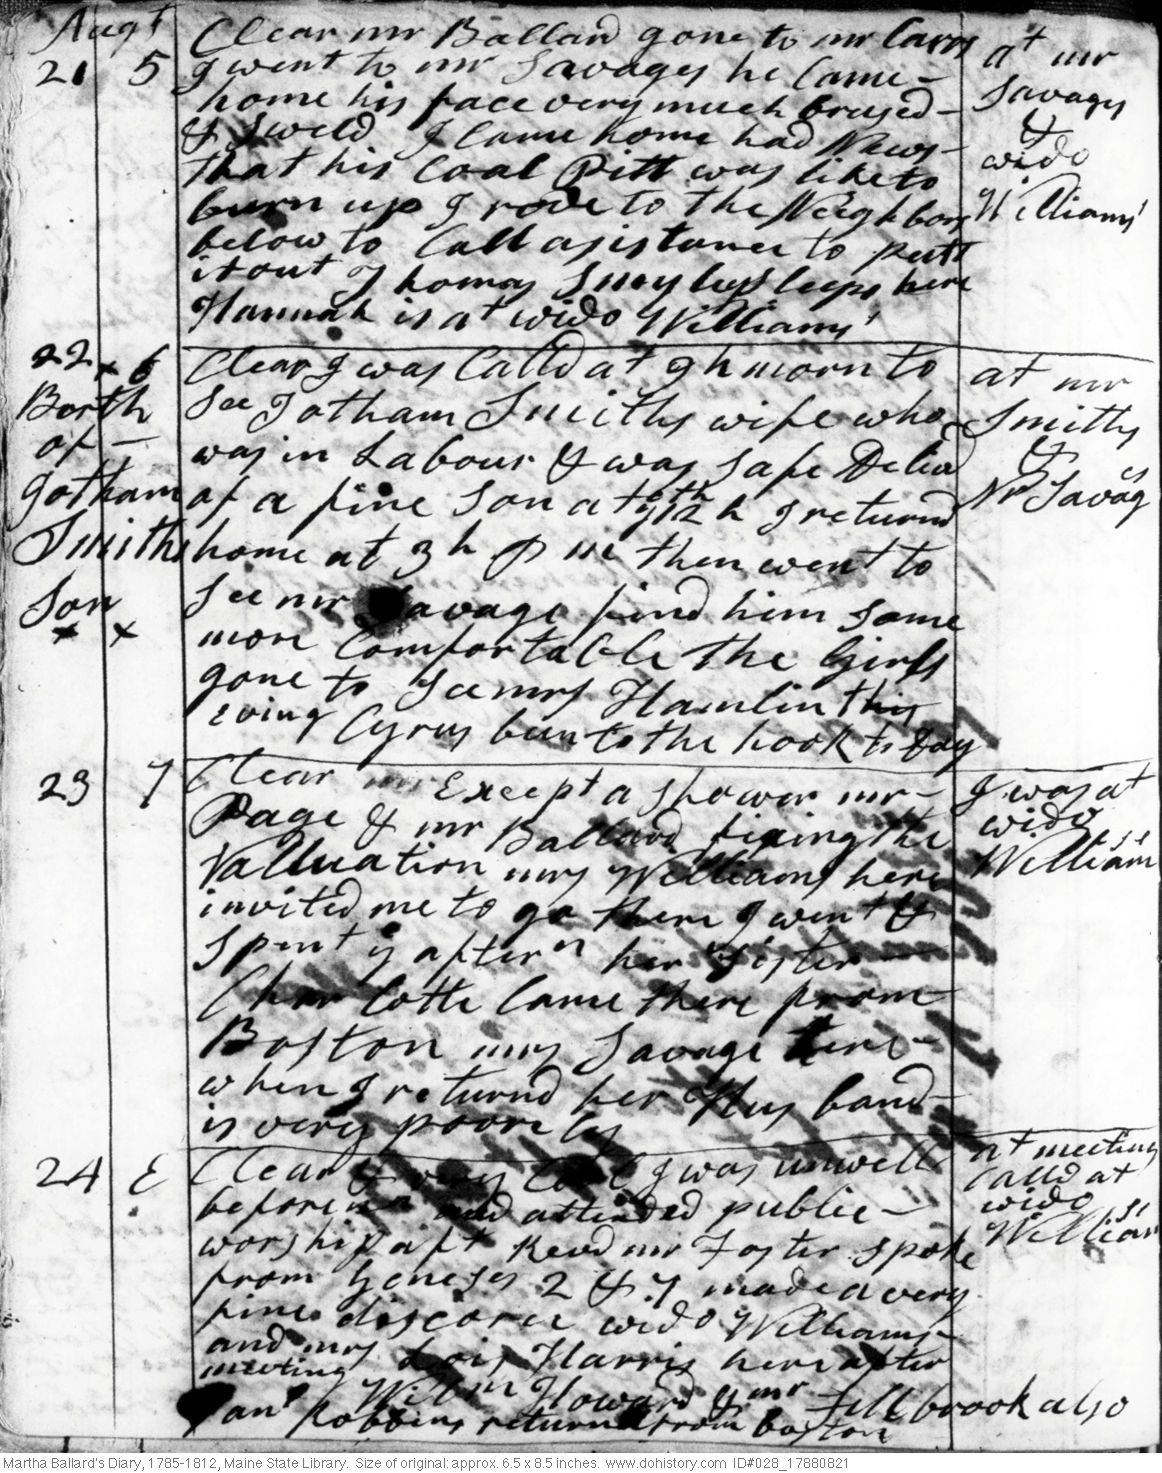 Augt
21 5
Clear mr Ballard gone to mr Carrs
I went to mr Savages he Came
home his face very much brused
& sweld I Came home had News
that his Coal Pitt was like to
burn up I rode to the Neighbors
below to Call asistance to putt
it out Thomas Smyley sleeps here
Hannah is at wido Williams'
at mr
Savages
&
wido
Williams'
22 x 6
Birth
of –
Jotham
Smiths
Son
x x
Clear I was Calld at 9 h morn to
See Jotham Smiths wife who
was in Labour & was safe Delivd
of a fine Son at 12 h I returnd
home at 3 h P m then went to
See mr Savage find him some
more Comfortable the Girls
gone to See mrs Hamlin this
evng Cyrus been to the hook to Day
at mr
Smiths
&
Mr Savags
23 7
Clear Except a shower mr
Page & mr Ballard fixing the
Valluation mrs Williams here
invited me to go there I went &
Spent ye aftern her Sister
Charlotte Came there from
Boston mrs Savage here
when I returnd her Husband
is very poorly
I was at
wido
Williams
24 E
Clear & very Cool I was unwell
before and attinded public
worship aft Revd mr Foster spoke
from Geneses 2 & 7 made a very
fine discorce wido Williams
and mrs Lois Harris here after
meeting Wilm Howard & mr Fillbrook also
Robbins returnd from boston
at meeting
Calld at
wido
Williams
Martha Ballard's Diary, 1785-1812, Maine State Library. Size of original: approx. 6.5 x 8.5 inches. www.dohistory.com ID#028_17880821